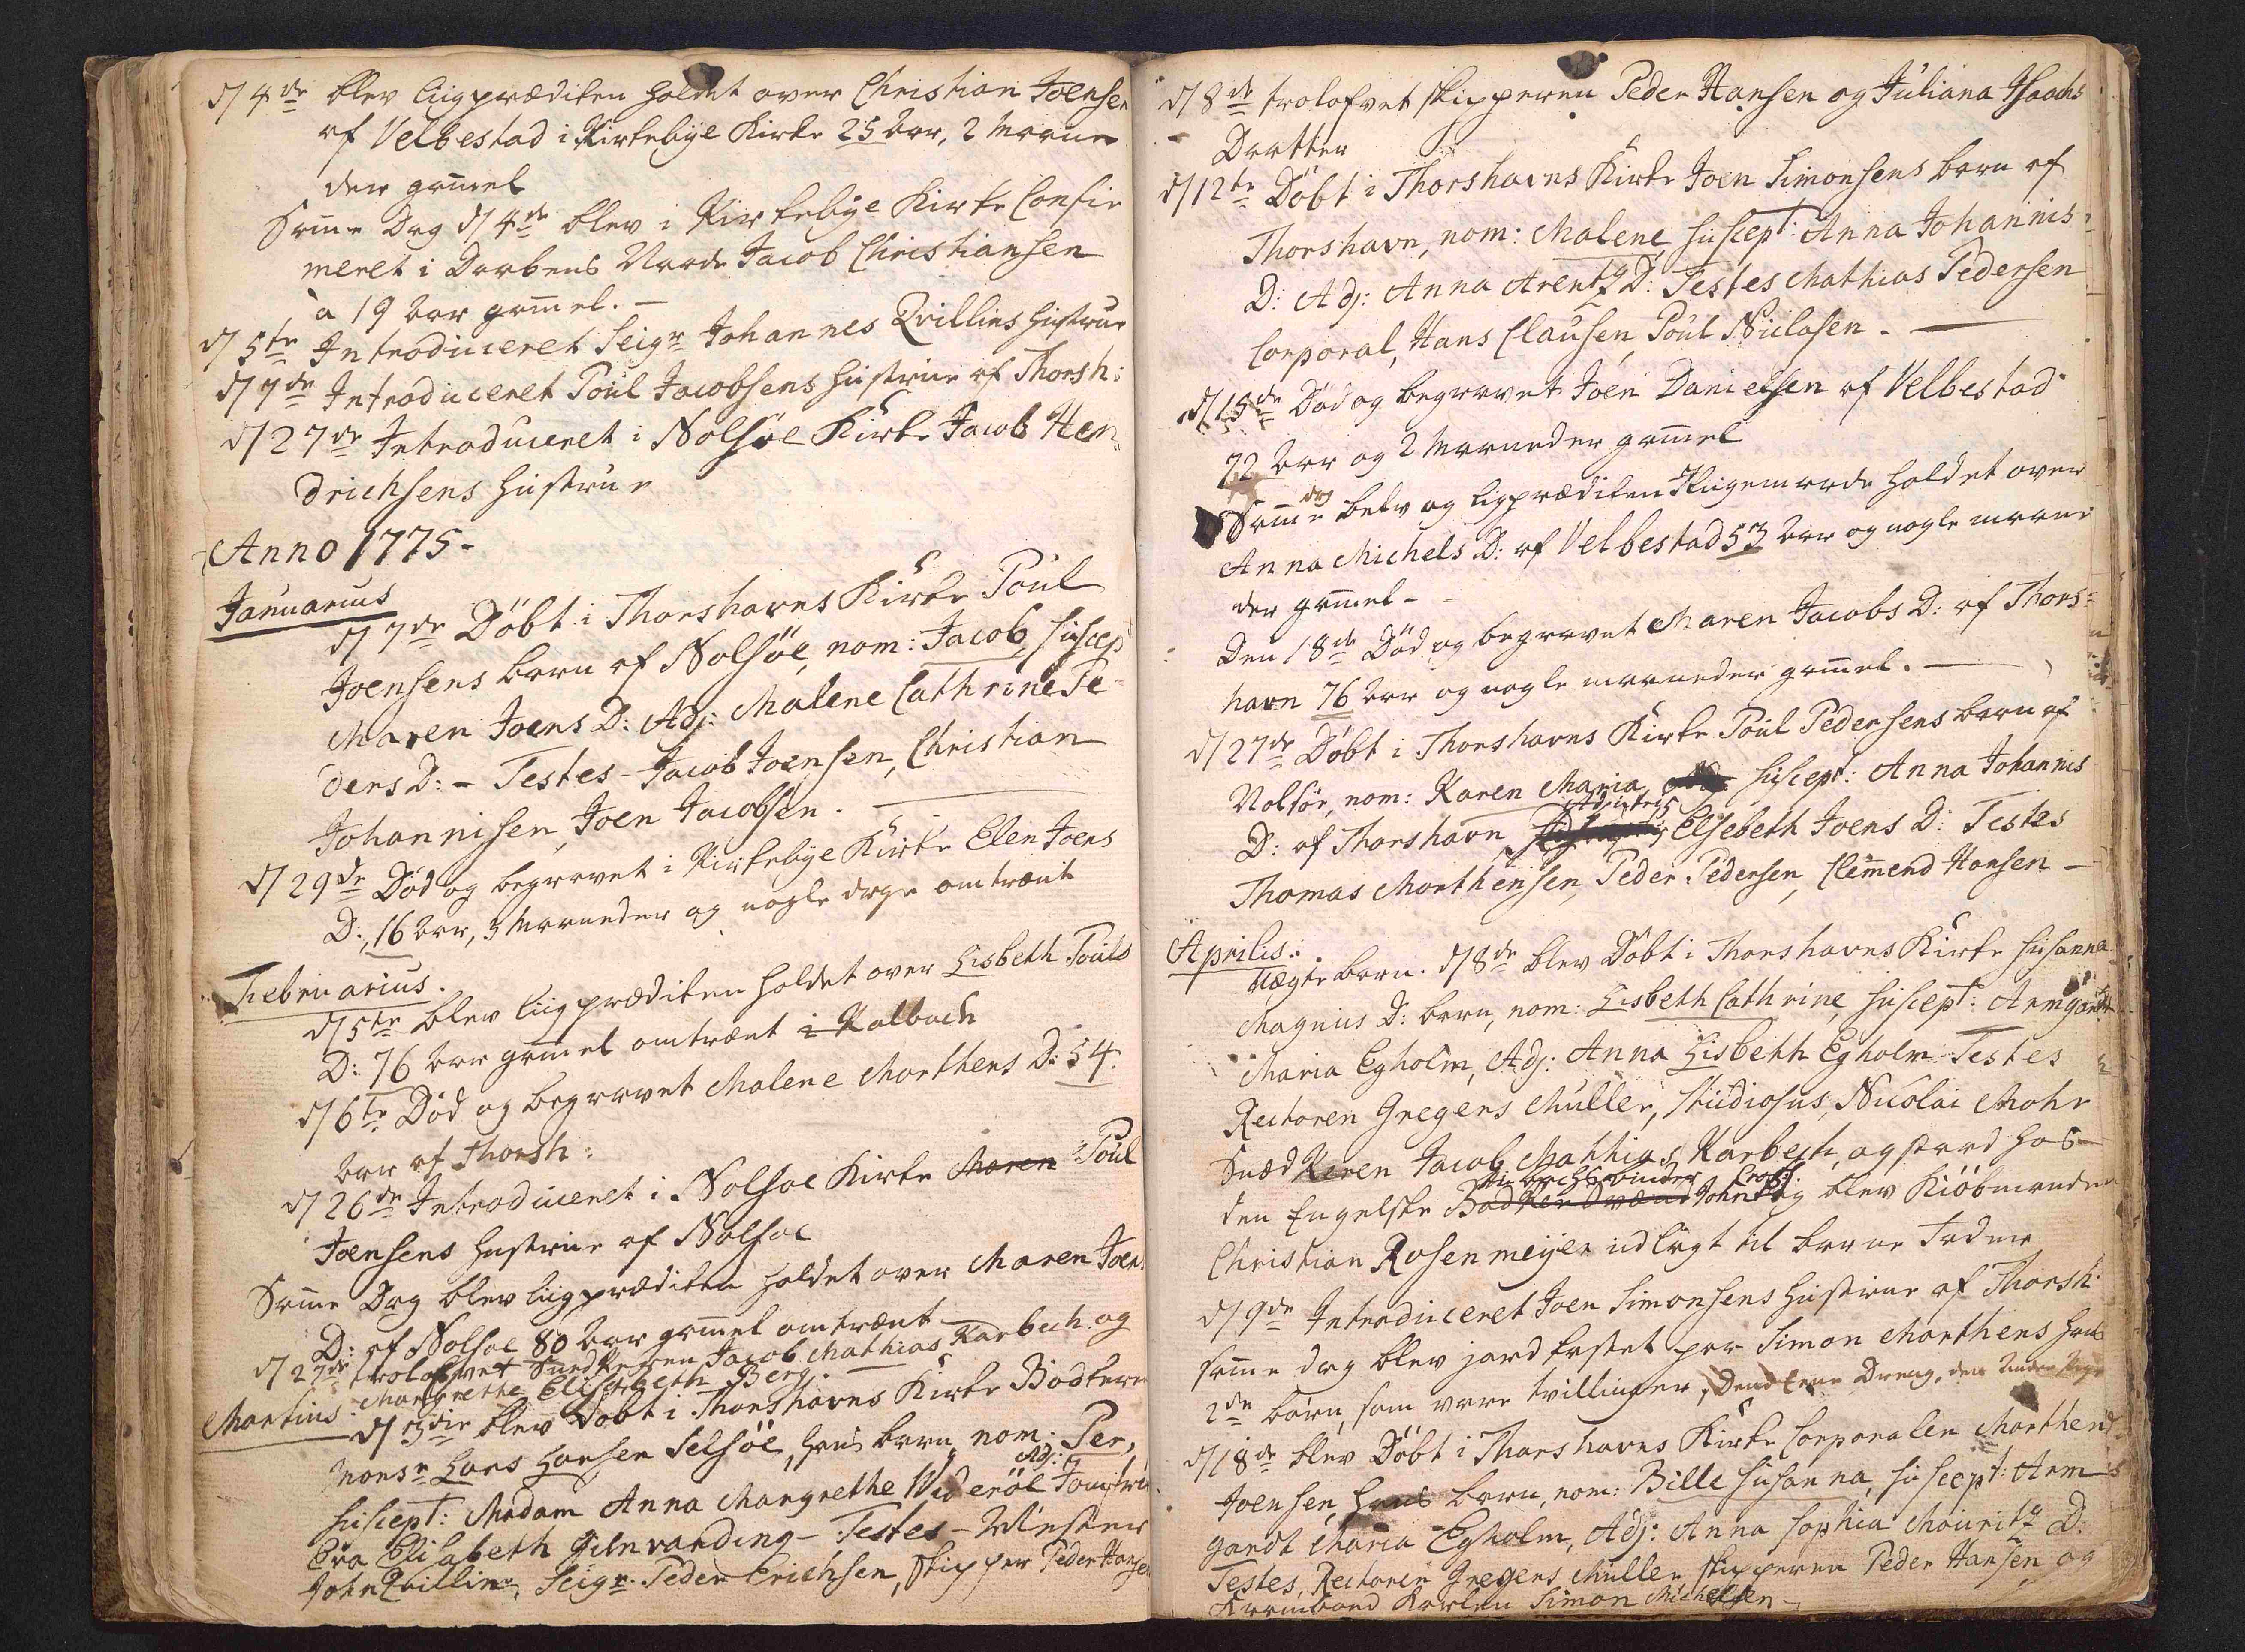 d/ 4de blev Liigprædiken holdet over Christian Joensen
af Velbestad i Kirkebÿe Kirke 25 Aar, 2 Maane
der gam̄el
Sam̄e Dag d/ 4de blev i Kirkebÿe Kirke Confir
meret i Daabens Naade Jacob Christiansen
à 19 Aar gam̄el. —
d/ 5te Introduceret Seigr Johannes Qvillins Hustrue
d/ 7de Introduceret Poul Jacobsens Hustrue af Thorsh:
d/ 27de Introduceret i Nolsøe Kirke Jacob Hen
drichsens Hustrue
Anno 1775-
Januarius
d/ 7de Döbt i Thorshavns Kirke Poul
Joensens barn af Nolsöe, nom: Jacob, suscep
Maren Joens D: Adj: Malene Cathrine Pe
ders D: - Testes - Jacob Joensen, Christian
Johannisen, Joen Jacobsen.
d/ 29de Död og begravet i Kirkebÿe Kirke Elen Joens
D:, 16 Aar, 3 Maaneder og nogle dage omtrænt
Februarius.
d/ 5te blev Liigprædiken holdet over Lisbeth Pouls
D: 76 Aar gam̄el omtrænt i Kalbach
d/ 6te Död og begravet Malene Morthens D: 54.
Aar af Thorsh:
d/ 26de Introduceret i Nolsoe Kirke Maren Poul
Joensens Hustrue af Nolsoe
Sam̄e Dag blev Liigprædiken holdet over Maren Joens
D: af Nolsoe 80 Aar gam̄el omtrænt
d/ 27de trolofvet Snedkeren Jacob Mathias Karbech og
Margrethe Elisabeth Berg.
Martius. d/ 3die blev Döbt i Thorshavns Kirke Bödkeren
Monsr Lars Hansen Selsöe, hans barn, nom: Per,
suscept: Madam Anna Margrethe Wideröe Adj: Jomfrue
Eva Elisabeth Gilnvarding - Testes - Mester
John Qvillin, Seigr. Peder Erichsen, Skipper Peder Hansen
d/ 8de trolofvet Skipperen Peder Hansen og Juliana Isaachs
Daatter
d/ 12te Döbt i Thorshavns Kirke Joen Simonsens barn af
Thorshavn, nom: Malene, suscept: Anna Johannis
D: Adj: Anna Arentz D: Testes Mathias Pedersen
Corporal, Hans Clausen, Poul Niclasen. —
d/ 15de Död og begravet Joen Danielsen af Velbestad
72 Aar og 2 Maaneder gam̄el
Sam̄e dag belv og Ligprædiken holdet over
Anna Michels D: af Velbestad 53 Aar og nogle maane
der gam̄el -
Den 18de Död og begravet Maren Jacobs D: af Thors-
havn 76 Aar og nogle maaneder gam̄el. —
d/ 27de Döbt i Thorshavns Kirke Poul Pedersens barn af
Nolsöe, nom: Karen Maria, suscept: Anna Johannis
D: af Thorshavn Adjutrix Elsebeth Joens D: Testes
Thomas Morthensen, Peder Pedersen, Clem̄end Hansen —
Aprilis:.
Uægte barn. d/ 8de blev Döbt i Thorshavns Kirke Susanna
Magnus D: barn, nom: Lisbeth Cathrine, suscept: Armgardt
Maria Egholm, Adj: Anna Lisbeth Egholm Testes
Rectoren Gregers Müller, Studiosus, Nicolai Mohr
Snædkeren Jacob Mathias Karbech, og stood hos
den Engelske John blev Kiöbmanden
Christian Rosenmeijer udlagt til barne Fader
d/ 9de Introduceret Joen Simonsens Hustrue af Thorsh:
sam̄e dag blev jord kastet paa Simon Morthens hans
2de börn, som vare tvillinger, Dend eene Dreng, den Anden Pige
d/ 18de blev Döbt i Thorshavns Kirke Corporalen Morthen
Joensen, hans barn, nom: Bille Susanna, suscept: Arm
gardt Maria Egholm, Adj: Anna Sophia Mouritz D:
Testes, Rectoren Gregers Müller Skipperen Peder Hansen og
Karlen Simon Michelsen —